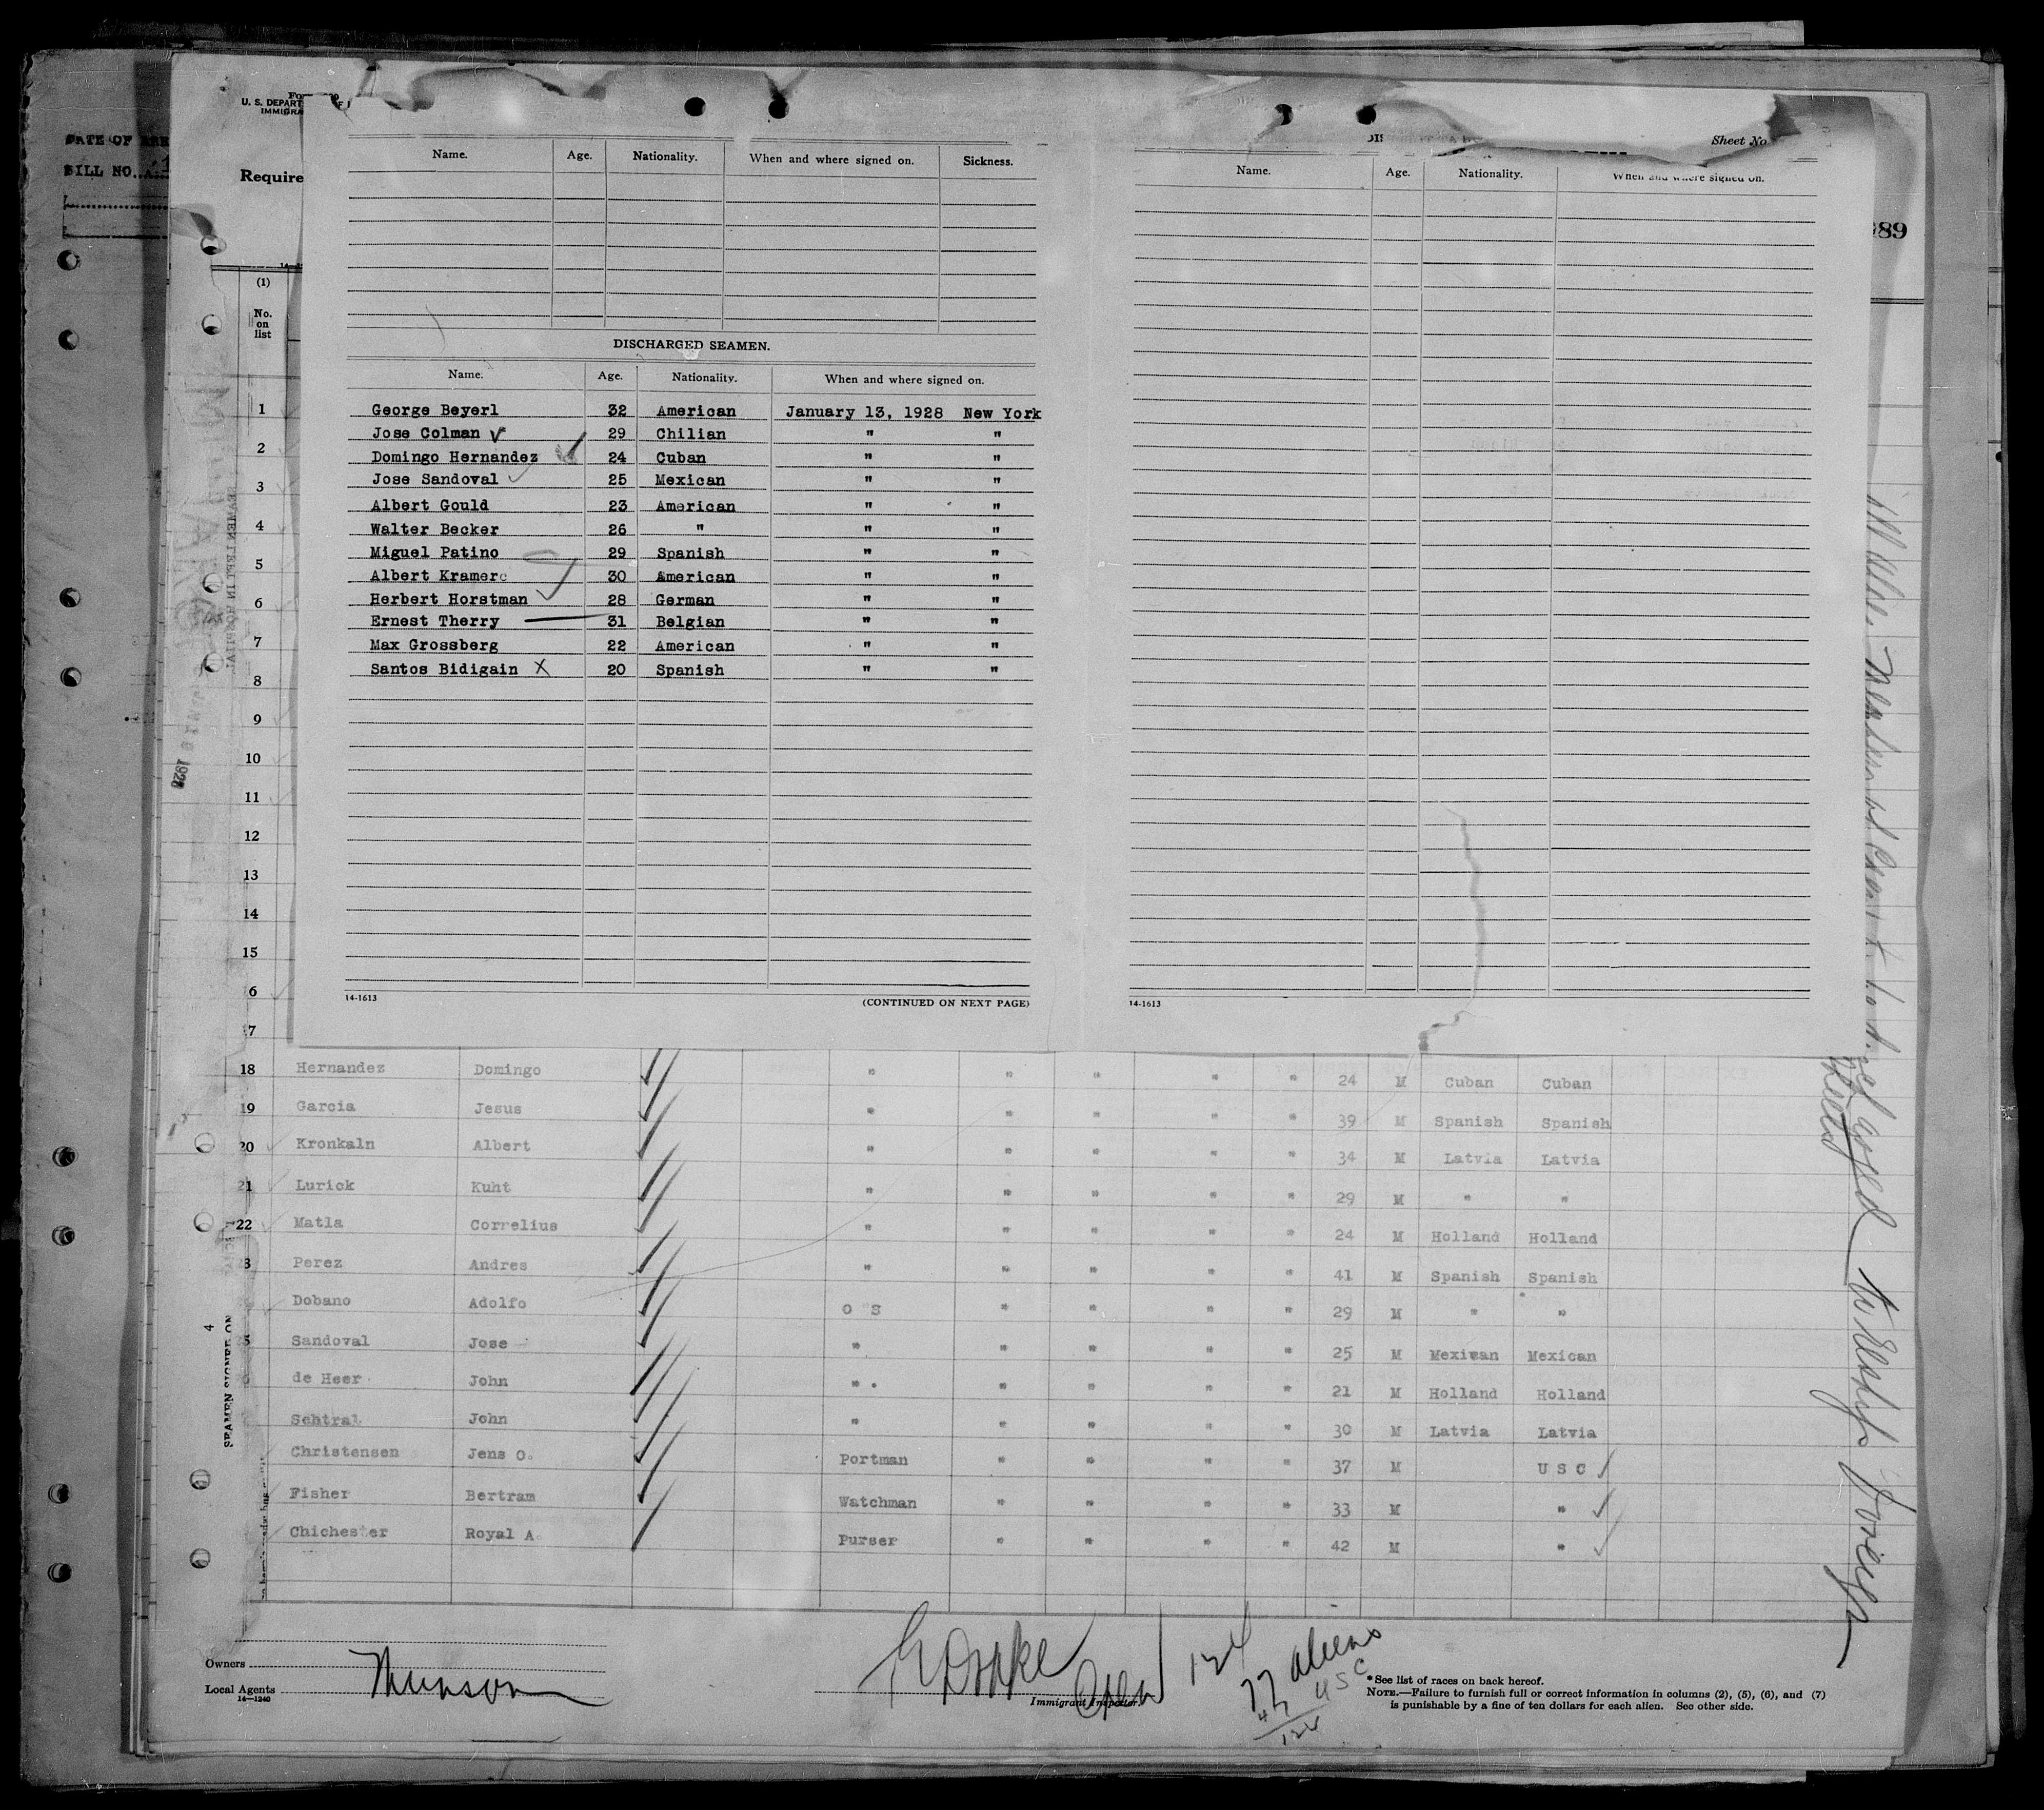 U. S. DEPART
IMMIGRA
DATE OF
BILL NO.
Require
Sheet No
89
(1)
No. on list
Name. Age. Nationality. When and where signed on. Sickness.
Name. Age. Nationality. When and where signed on.
DISCHARGED SEAMEN.
Name. Age. Nationality. When and where signed on.
George Beyerl 32 American January 13, 1928 New York
Jose Colman 29 Chilian " "
Domingo Hernandez 24 Cuban " "
Jose Sandoval 25 Mexican " "
Albert Gould 23 American " "
Walter Becker 26 " " "
Miguel Patino 29 Spanish " "
Albert Kramer 30 American " "
Herbert Horstman 28 German " "
Ernest Therry 31 Belgian " "
Max Grossberg 22 American " "
Santos Bidigain X 20 Spanish " "
1
2
3
4
5
6
7
8
9
10
11
12
13
14
15
6
17
14-1613 (CONTINUED ON NEXT PAGE) 14-1613
18 Hernandez Domingo " " " " " 24 M Cuban Cuban
19 Garcia Jesus " " " " " 39 M Spanish Spanish
20 Kronkaln Albert " " " " " 34 M Latvia Latvia
21 Lurick Kuht " " " " " 29 M " "
22 Matla Correlius " " " " " 24 M Holland Holland
23 Perez Andres " " " " " 41 M Spanish Spanish
Dobano Adolfo O S " " " " 29 M " "
Sandoval Jose " " " " " 25 M Mexican Mexican
de Heer John " " " " " 21 M Holland Holland
Sehtral John " " " " " 30 M Latvia Latvia
Christensen Jens O. Portman " " " " 37 M U S C
Fisher Bertram Watchman " " " " 33 M "
Chichester Royal A. Purser " " " " 42 M "
SEAMEN SIGNED ON
SEAMEN LEFT IN HOSPITAL
1928
4
Owners
Local Agents Munson
14-1240
Immigrant Inspector.
124
77 aliens
47 U S C
124
*See list of races on back hereof.
NOTE.—Failure to furnish full or correct information in columns (2), (5), (6), and (7)
is punishable by a fine of ten dollars for each alien. See other side.